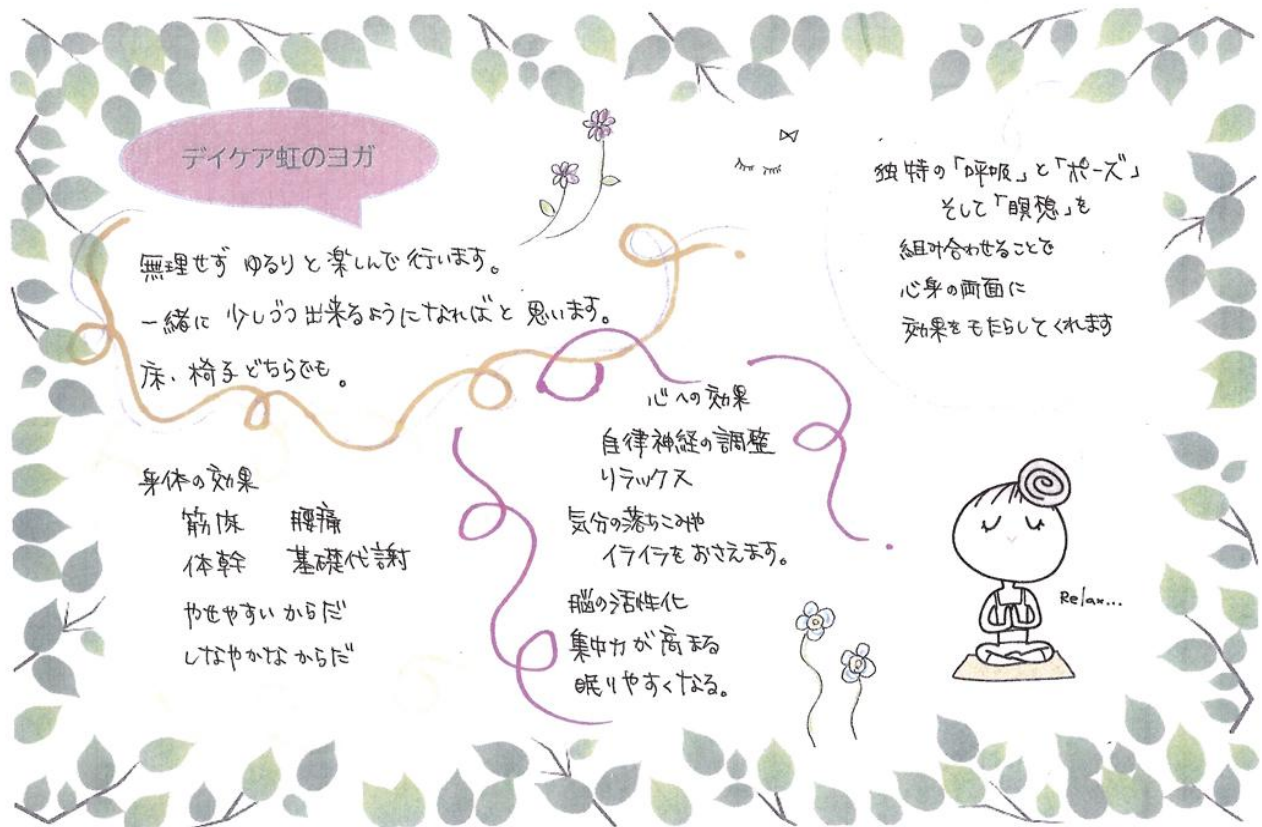 デイケア虹のヨガ
無理せず ゆるりと楽しんで行います。
一緒に 少しづつ出来るようになればと思います。
床、椅子どちらでも。
独特の「呼吸」と「ポーズ」
そして「瞑想」を
組み合わせることで
心身の両面に
効果をもたらしてくれます
身体の効果
筋肉 腰痛
体幹 基礎代謝
やせやすいからだ
しなやかなからだ
心への効果
自律神経の調整
リラックス
気分の落ちこみや
イライラをおさえます。
脳の活性化
集中力が高まる
眠りやすくなる。
Relax...